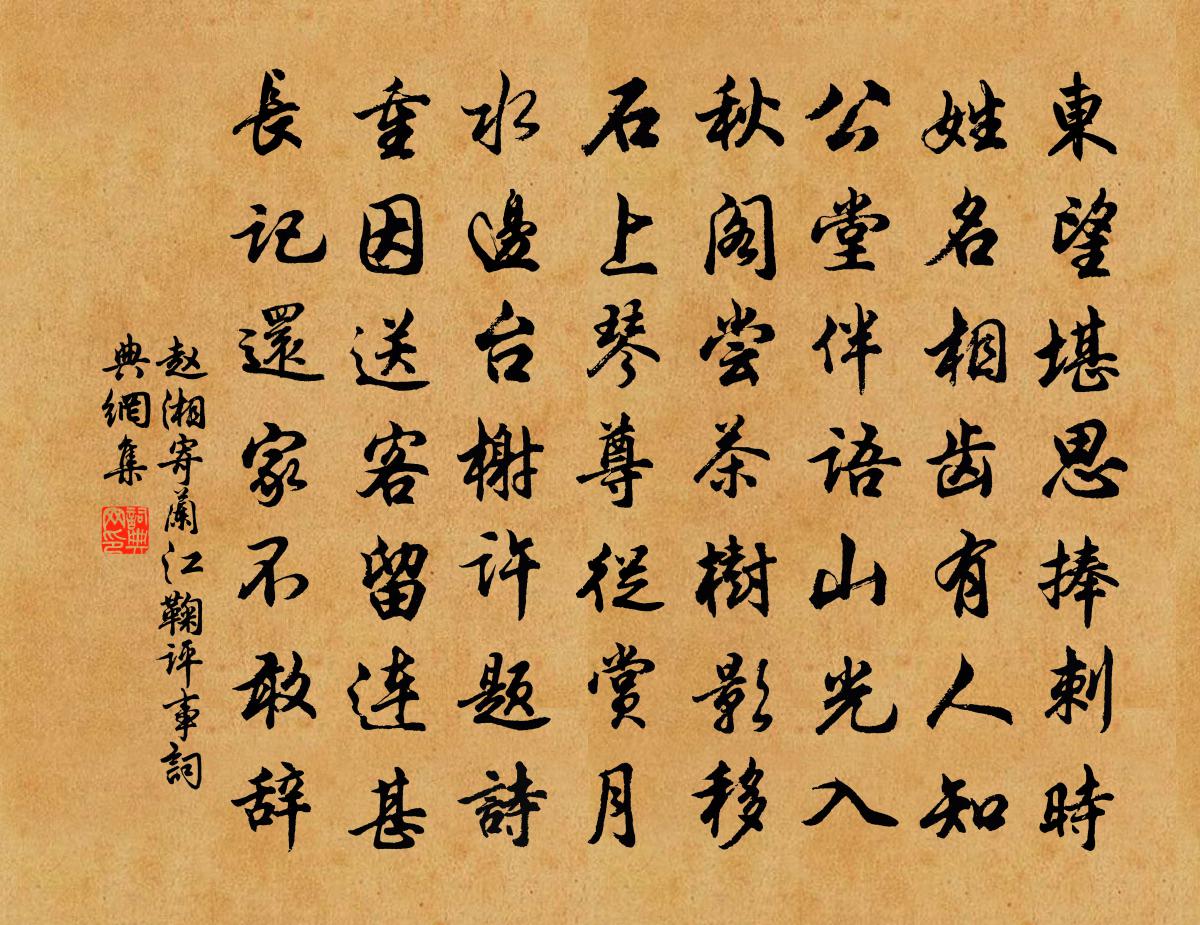 東望堪思捧刺時
姓名相齿有人知
公堂伴語山光入
秋阁尝茶樹影移
石上琴尊從赏月
水邊台榭許题詩
重因送客留连甚
長记還家不敢辞
赵湘寄蘭江鞠评事詞
典網集
詞典
网印